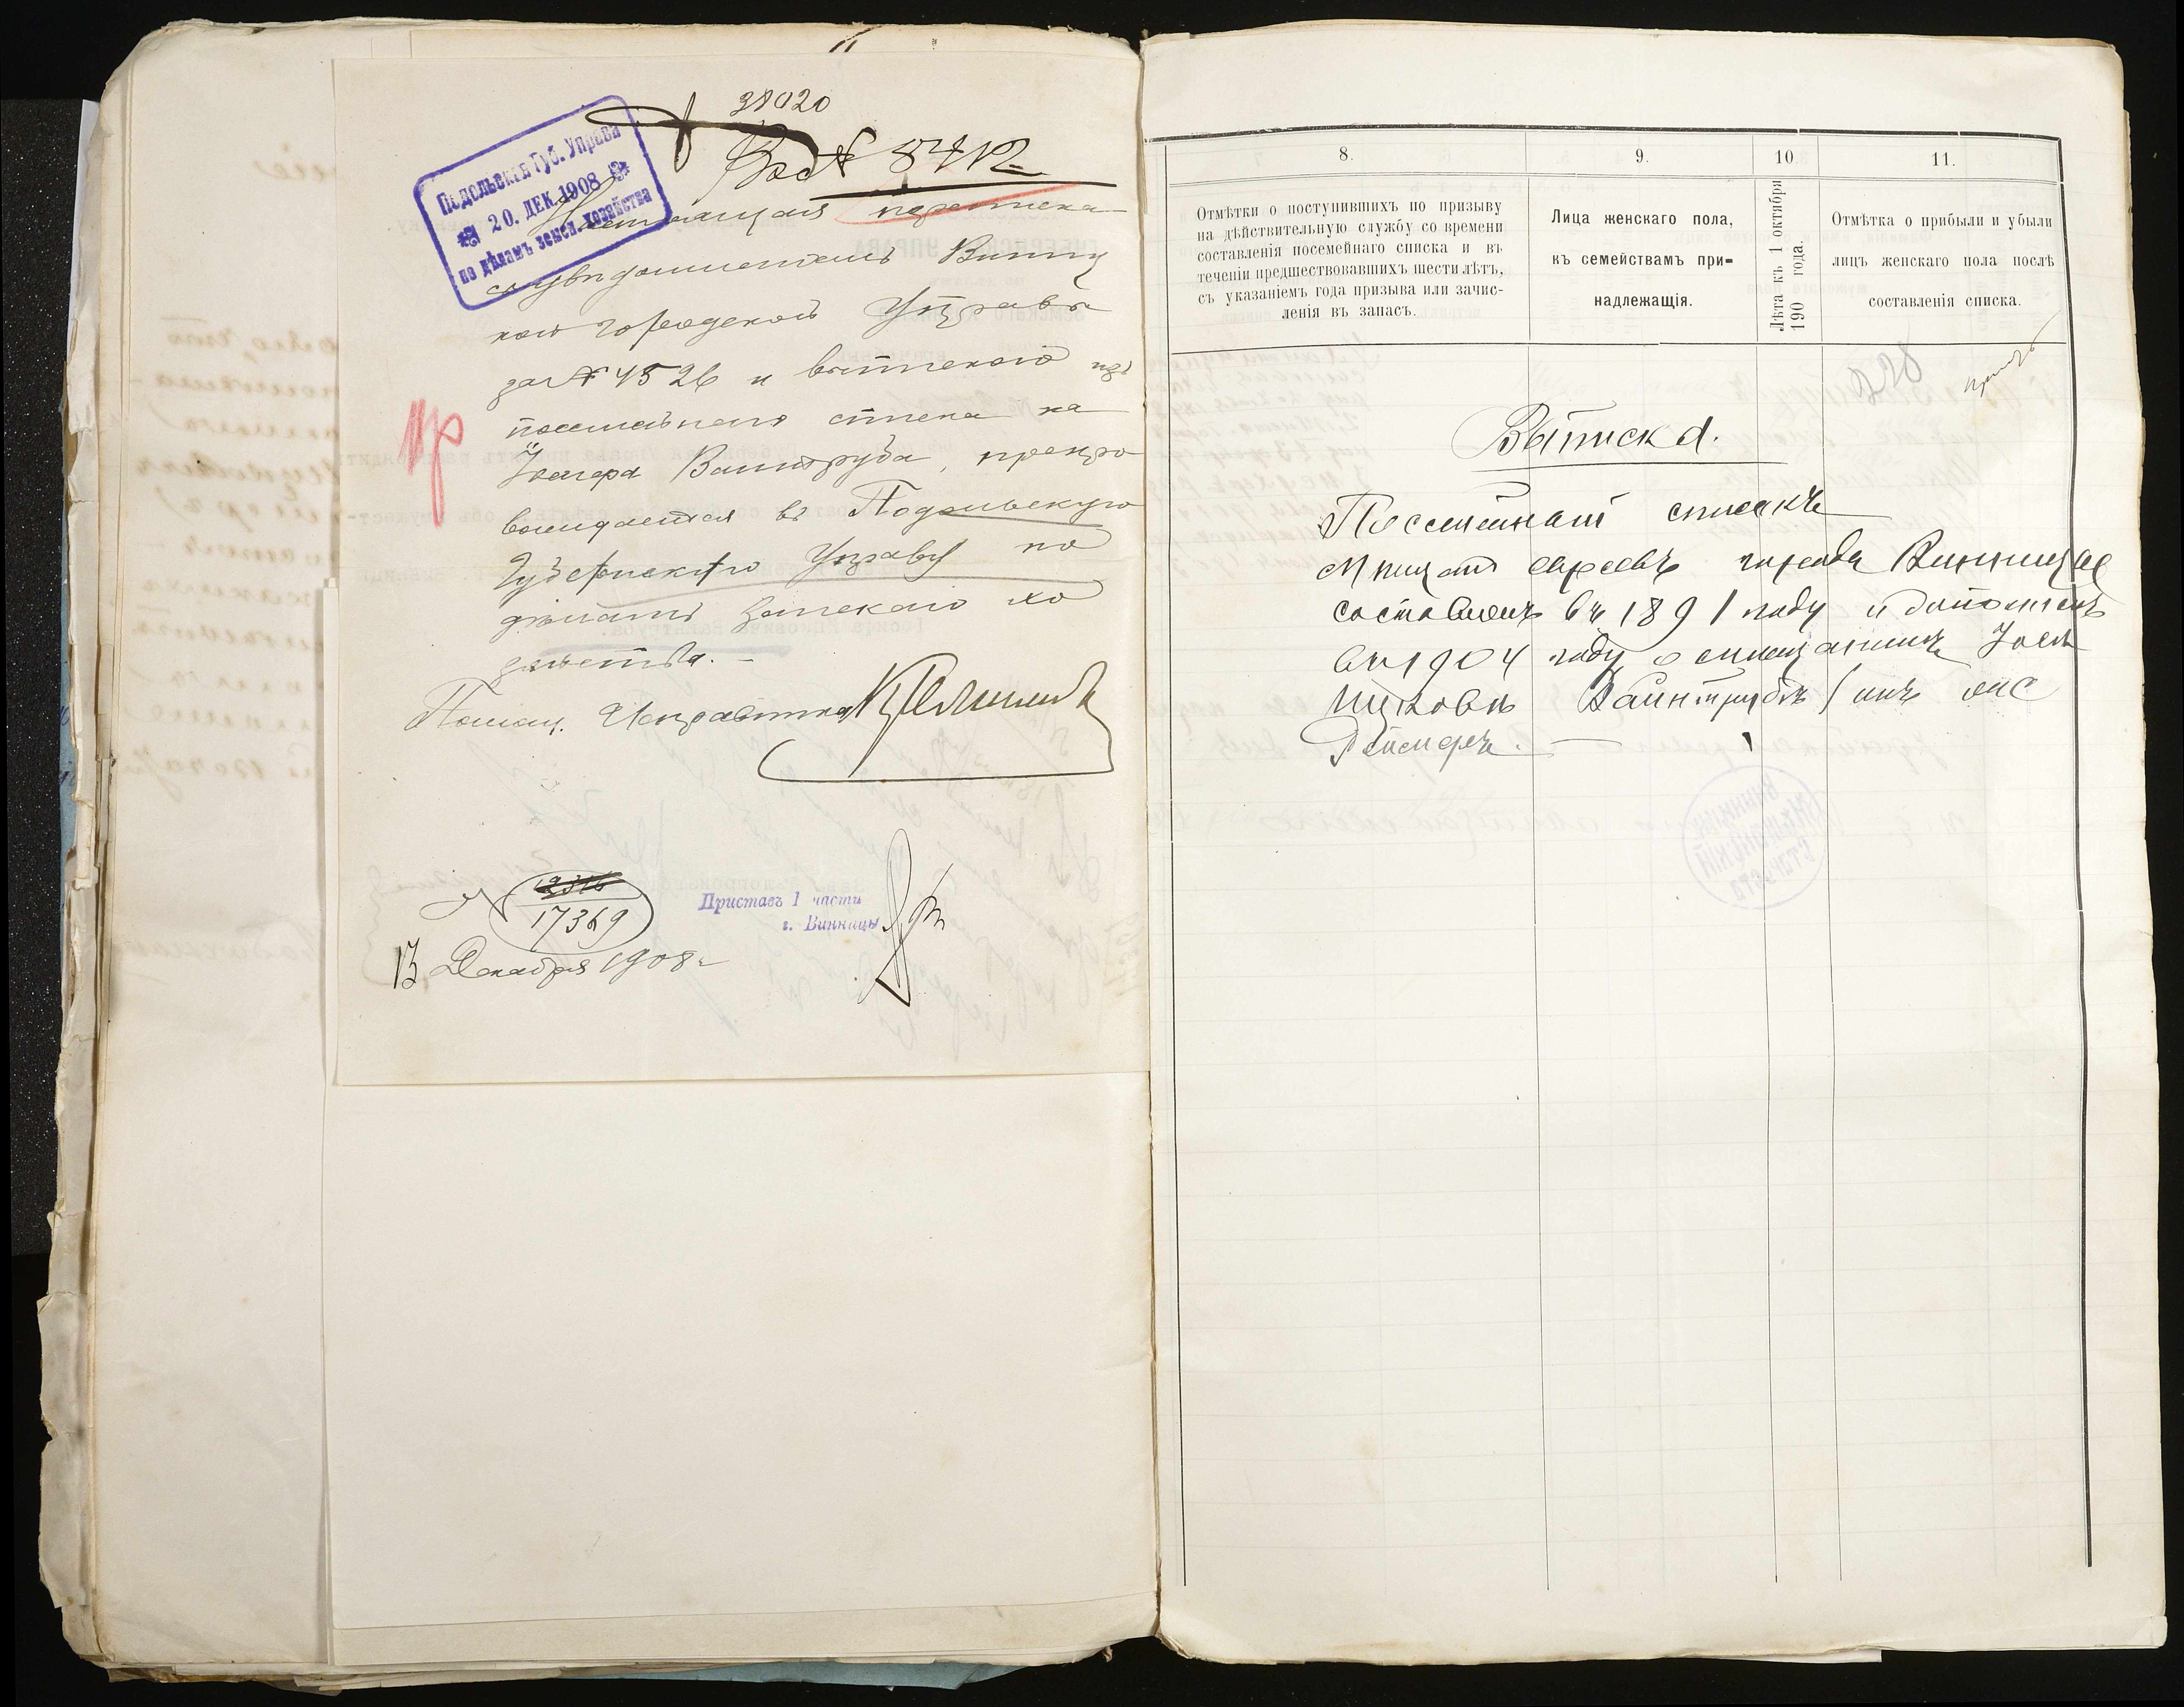 38020
Вход № 5412
Подольская Губ. Управа
20. ДЕК. 1908
по дѣламъ земск. хозяйства
Настоящая переписка
съ увѣдомленіемъ Винниц
кой городской Управы
за № 4526 и выпиской изъ
посемейнаго списка на
Іосифа Ваинтруба, препро
вождается въ Подольскую
Губернскую Управу по
дѣламъ Земскаго хо
зяйства. —
Помощ. Исправника
№ 17369
Приставъ 1 части
г. Винницы
13 Декабря 1908 г.
8.
9.
10
11.
Отмѣтки о поступившихъ по призыву
на дѣйствительную службу со времени
составленія посемейнаго списка и въ
теченіи предшествовавшихъ шести лѣтъ,
съ указаніемъ года призыва или зачис-
ленія въ запасъ.
Лица женскаго пола,
къ семействамъ при-
надлежащія.
Лѣта къ 1 октября
190 года.
Отмѣтка о прибыли и убыли
лицъ женскаго пола послѣ
составленія списка.
228
Выписка.
Посемейный списокъ
Мѣщанъ евреевъ города Винницы
составленъ въ 1891 году и дополненъ
въ 1904 году о мѣщанинѣ Іосѣ
Ицковѣ Ваинтрубѣ (инъ онъ